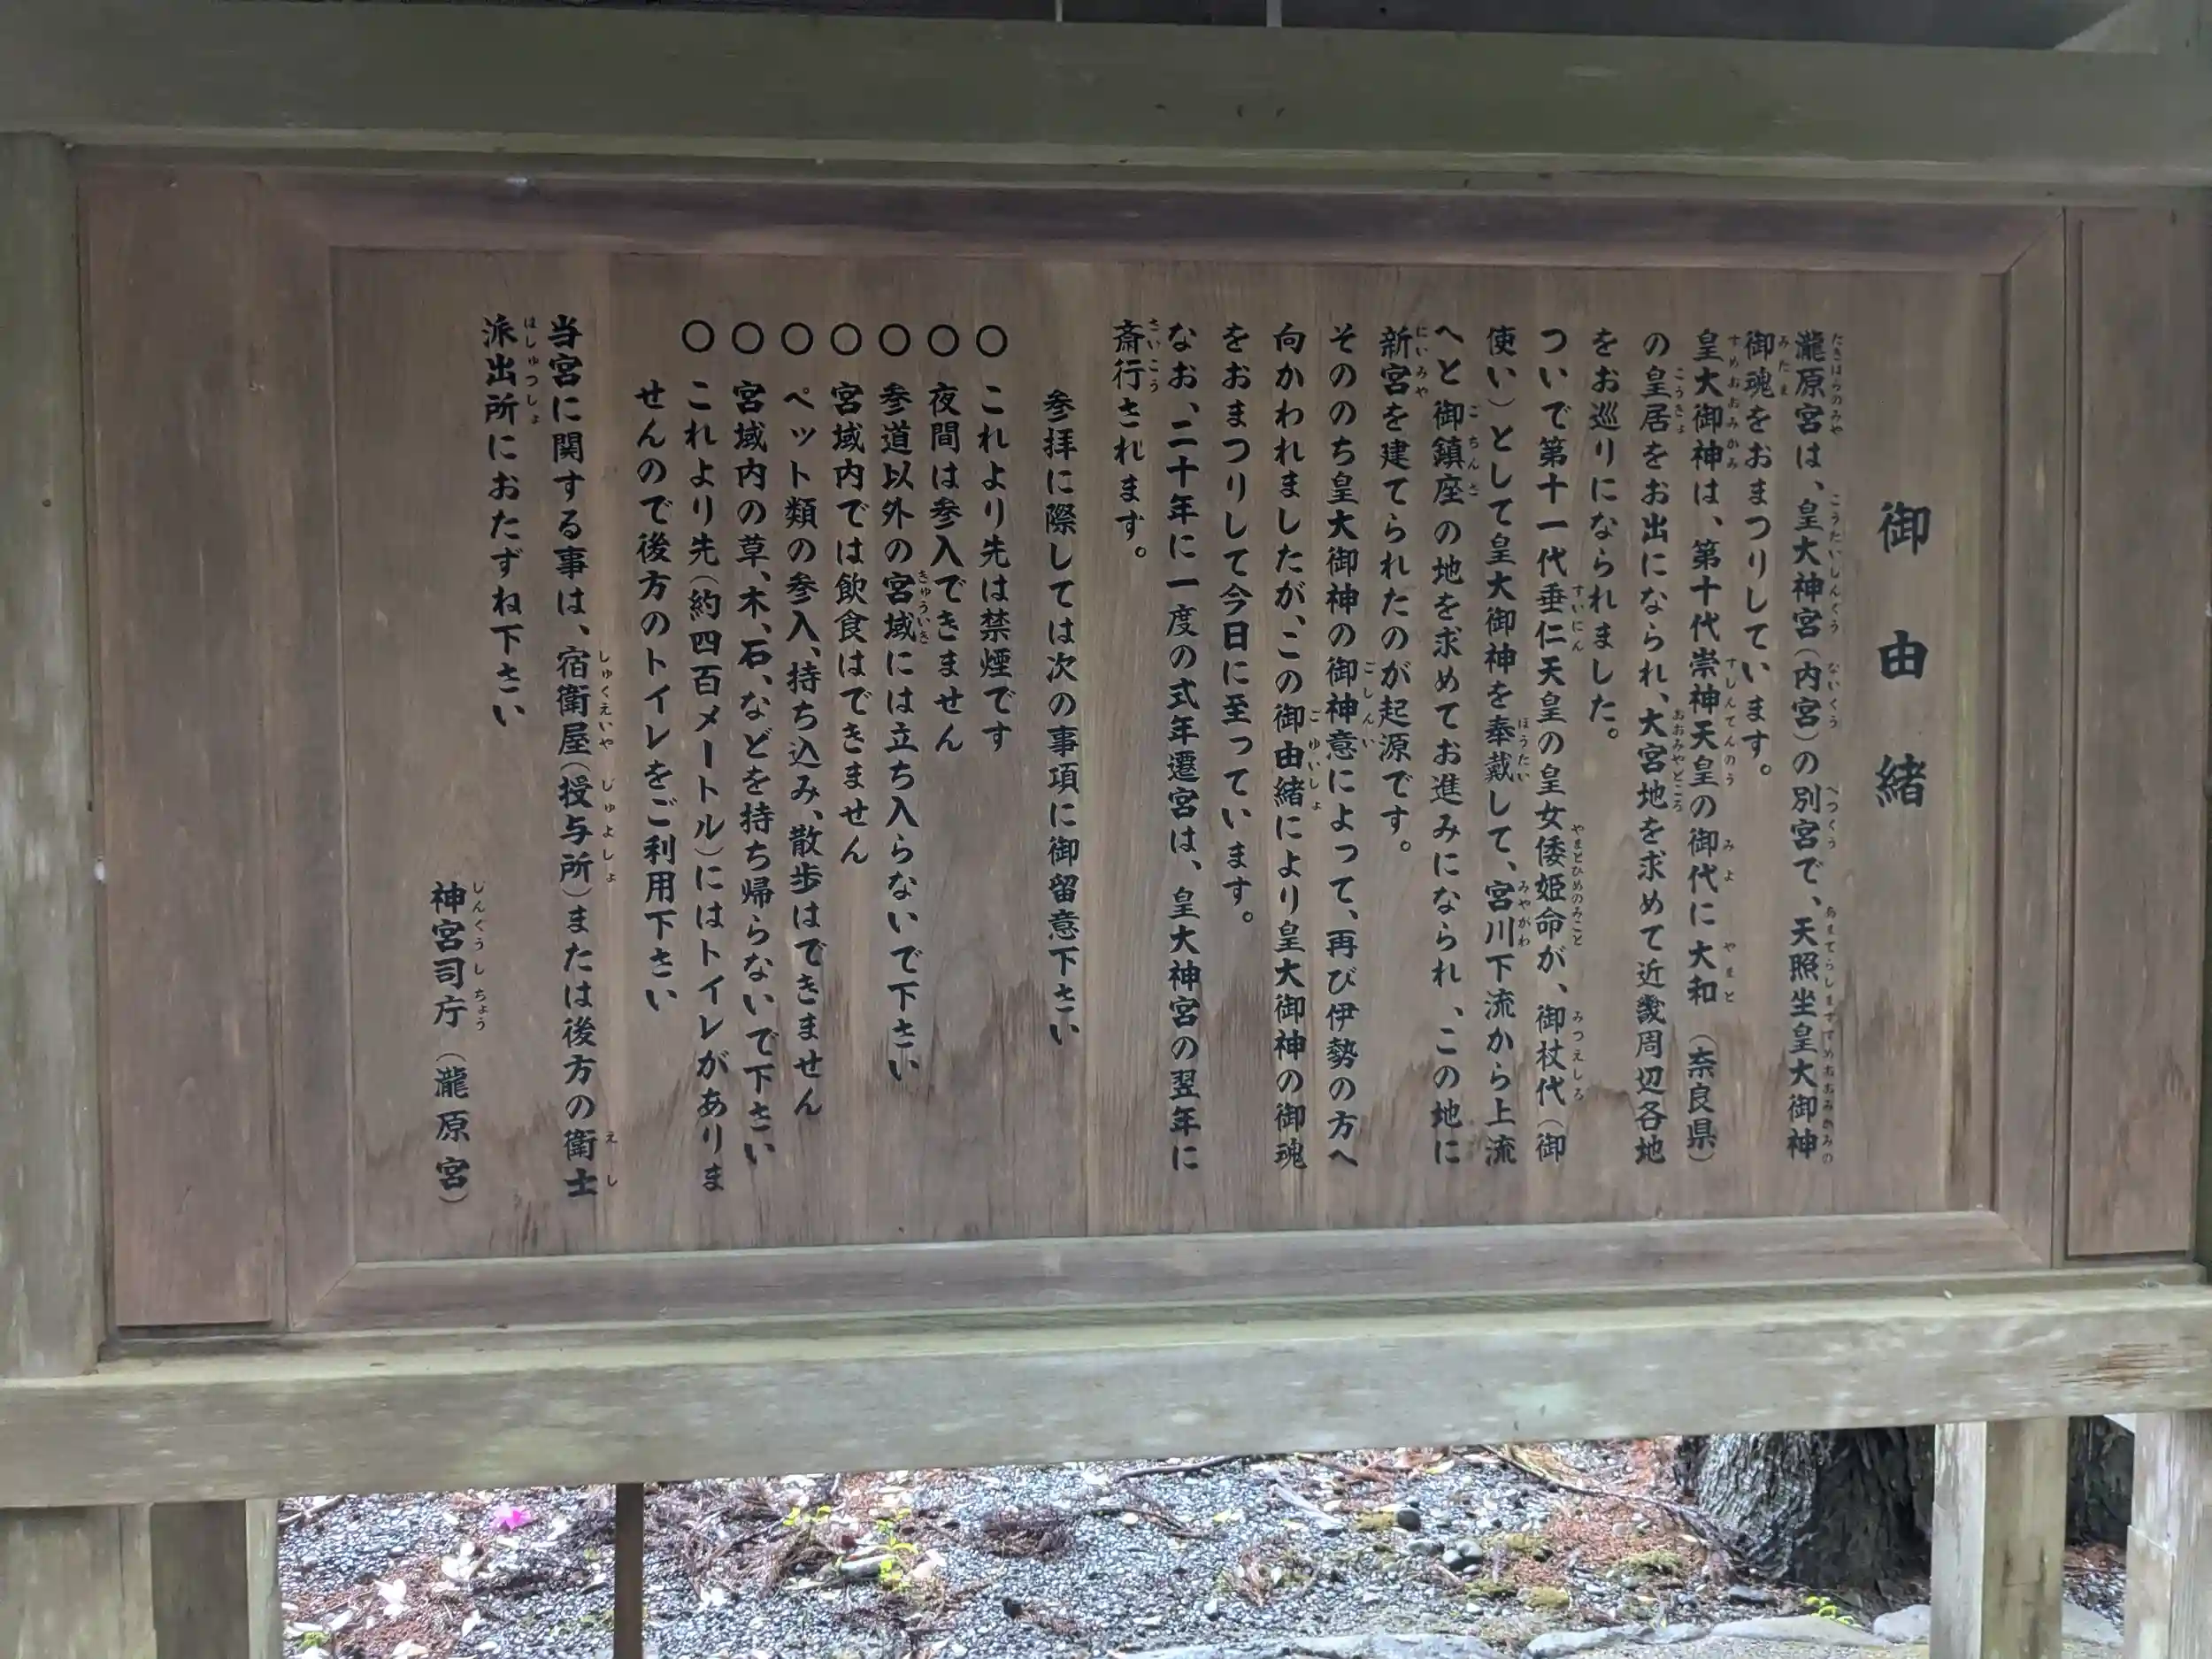 御由緒
瀧原宮は、皇大神宮(内宮)の別宮で、天照坐皇大御神
御魂をおまつりしています。
皇大御神は、第十代崇神天皇の御代に大和(奈良県)
の皇居をお出になられ、大宮地を求めて近畿周辺各地
をお巡りになられました。
ついで第十一代垂仁天皇の皇女倭姫命が、御杖代(御
使い)として皇大御神を奉戴して、宮川下流から上流
へと御鎮座の地を求めてお進みになられ、この地に
新宮を建てられたのが起源です。
そののち皇大御神の御神意によって、再び伊勢の方へ
向かわれましたが、この御由緒により皇大御神の御魂
をおまつりして今日に至っています。
なお、二十年に一度の式年遷宮は、皇大神宮の翌年に
斎行されます。
参拝に際しては次の事項に御留意下さい
〇 これより先は禁煙です
〇 夜間は参入できません
〇 参道以外の宮域には立ち入らないで下さい
〇 宮域内では飲食はできません
〇 ペット類の参入、持ち込み、散歩はできません
〇 宮域内の草、木、石、などを持ち帰らないで下さい
〇 これより先(約四百メートル)にはトイレがありま
せんので後方のトイレをご利用下さい
当宮に関する事は、宿衛屋(授与所)または後方の衛士
派出所におたずね下さい
神宮司庁(瀧原宮)